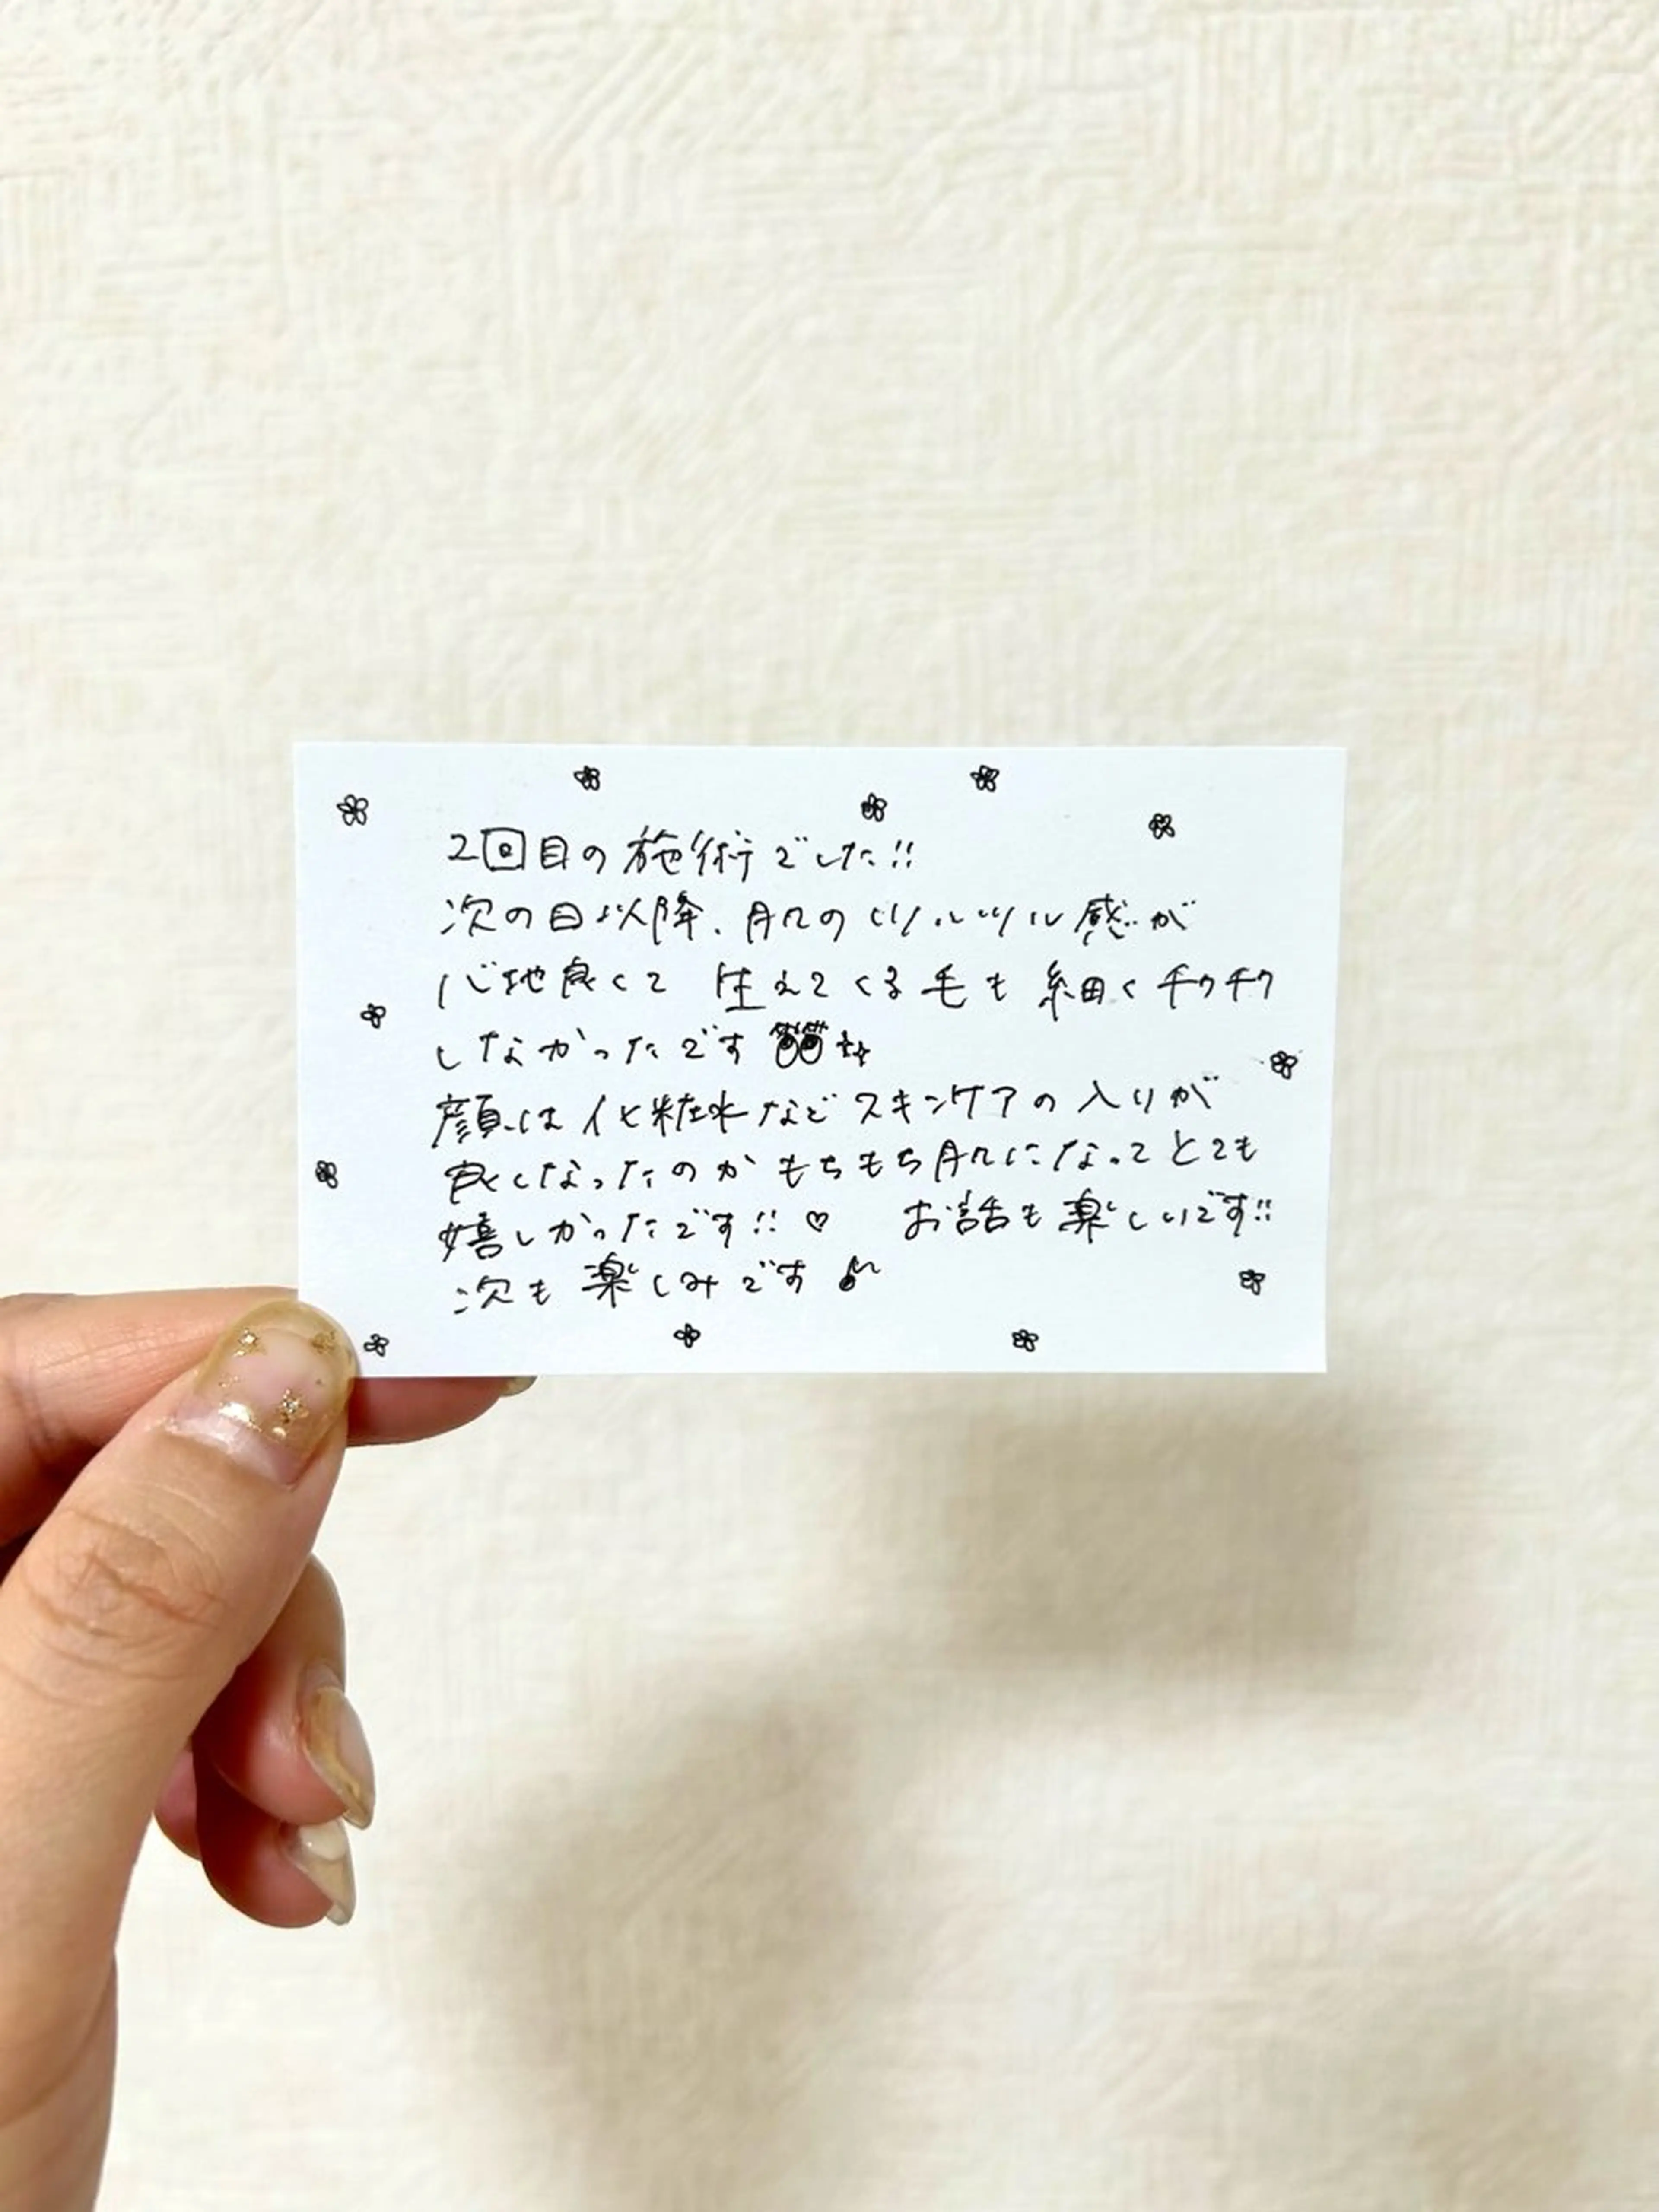 2回目の施術でした!!
次の日以降、肌のツルツル感が
心地良くて 生えてくる毛も細くチクチク
しなかったです
顔は化粧水などスキンケアの入りが
良くなったのかもちもち肌になってとても
嬉しかったです!!♡ お話も楽しいです!!
次も楽しみです♪